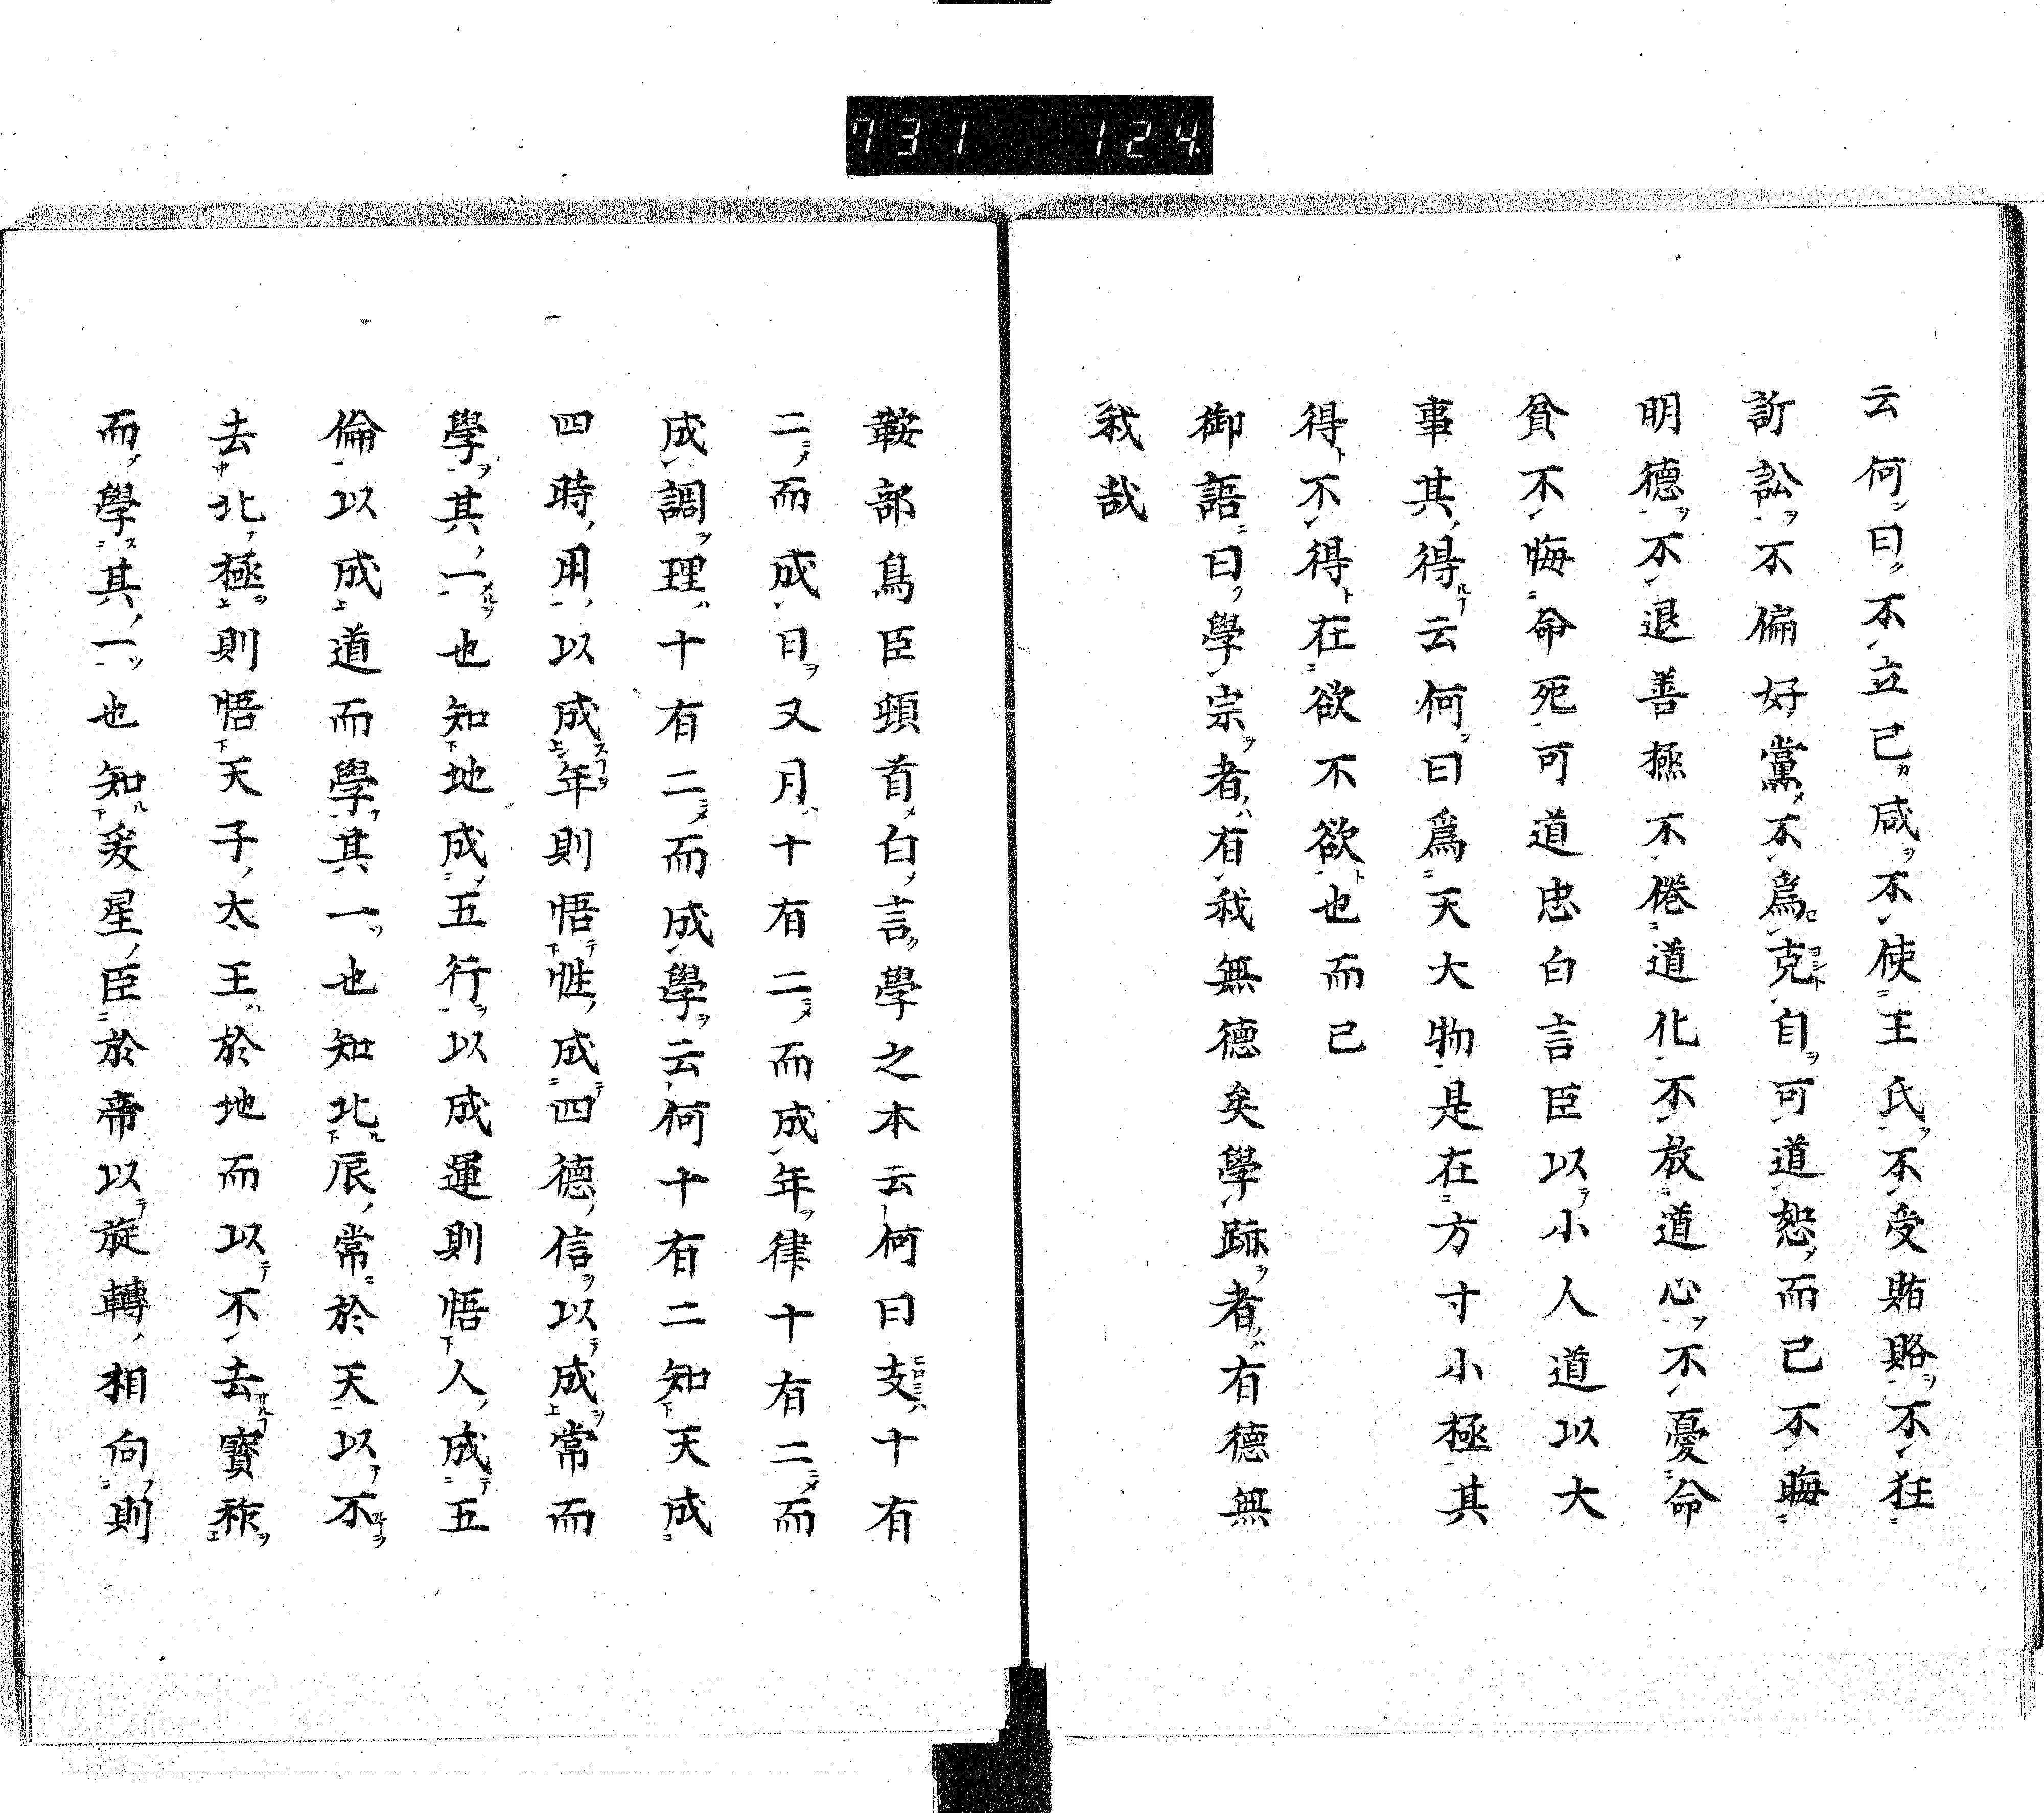 731 124
云何曰不立己咸不使王氏不受賂賂不狂
訢訟不偏好黨不爲克自可道恕而已不晦
明德不退善極不倦道化不放道心不憂命
貧不悔命死可道忠白言臣以小人道以大
事其得云何曰爲天大物是在方寸小極其
得不得在欲不欲也而已
御語曰學宗者有我無德矣學跡者有德無
我哉
鞍部鳥臣頓首白言學之本云何曰支十有
二而成日又月十有二而成年律十有二而
成調理十有二而成學云何十有二知天成
四時用以成年則悟性成四德信以成常而
學其一也知地成五行以成運則悟人成五
倫以成道而學其一也知北辰常於天以不
去北極則悟天子太王於地而以不去寶祚
而學其一也知爰星臣於帝以旋轉相向則